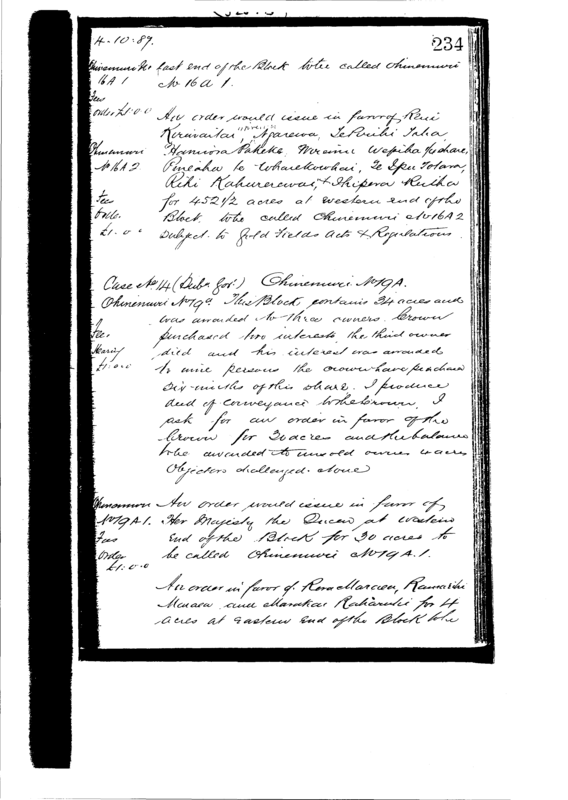 4-10-89.
234
Ohinemuri No East end of the Block to be called Ohinemuri
16A 1 No 16A 1.
Fees
order £1.0.0 An order would issue in favor of Reni
Ngarewa, Te Paribi Taha,
Ohinemuri Hamiora Pakeke, Wiremu
No 16A2 Pineaha te Wharekowhai, Te Ipu Totara,
Riki
Fees for 452 1/2 acres at western end of the
Order Block to be called Ohinemuri No 16A2
£1.0.0 Subject to Gold Fields Acts & Regulations.
Case No 14 (Pub. Gov.) Ohinemuri No 19A.
Ohinemuri No 19a This Block contains 34 acres and
was awarded to three owners. Crown
Fees purchased two interests, the third owner
Hearing died and his interest was awarded
£1.0.0 to nine persons the crown have purchased
six-ninths of this share. I produce
deed of conveyance to the Crown. I
ask for an order in favor of the
Crown for 30 acres and the balance
to be awarded to unsold owners 4 acres
Objectors challenged. None
Ohinemuri An order would issue in favor of
No 19A1. Her Majesty the Queen at western
Fees End of the Block for 30 acres to
Order be called Ohinemuri No 19A.1.
£1.0.0
An order in favor of
and for 4
acres at Eastern End of the Block to be